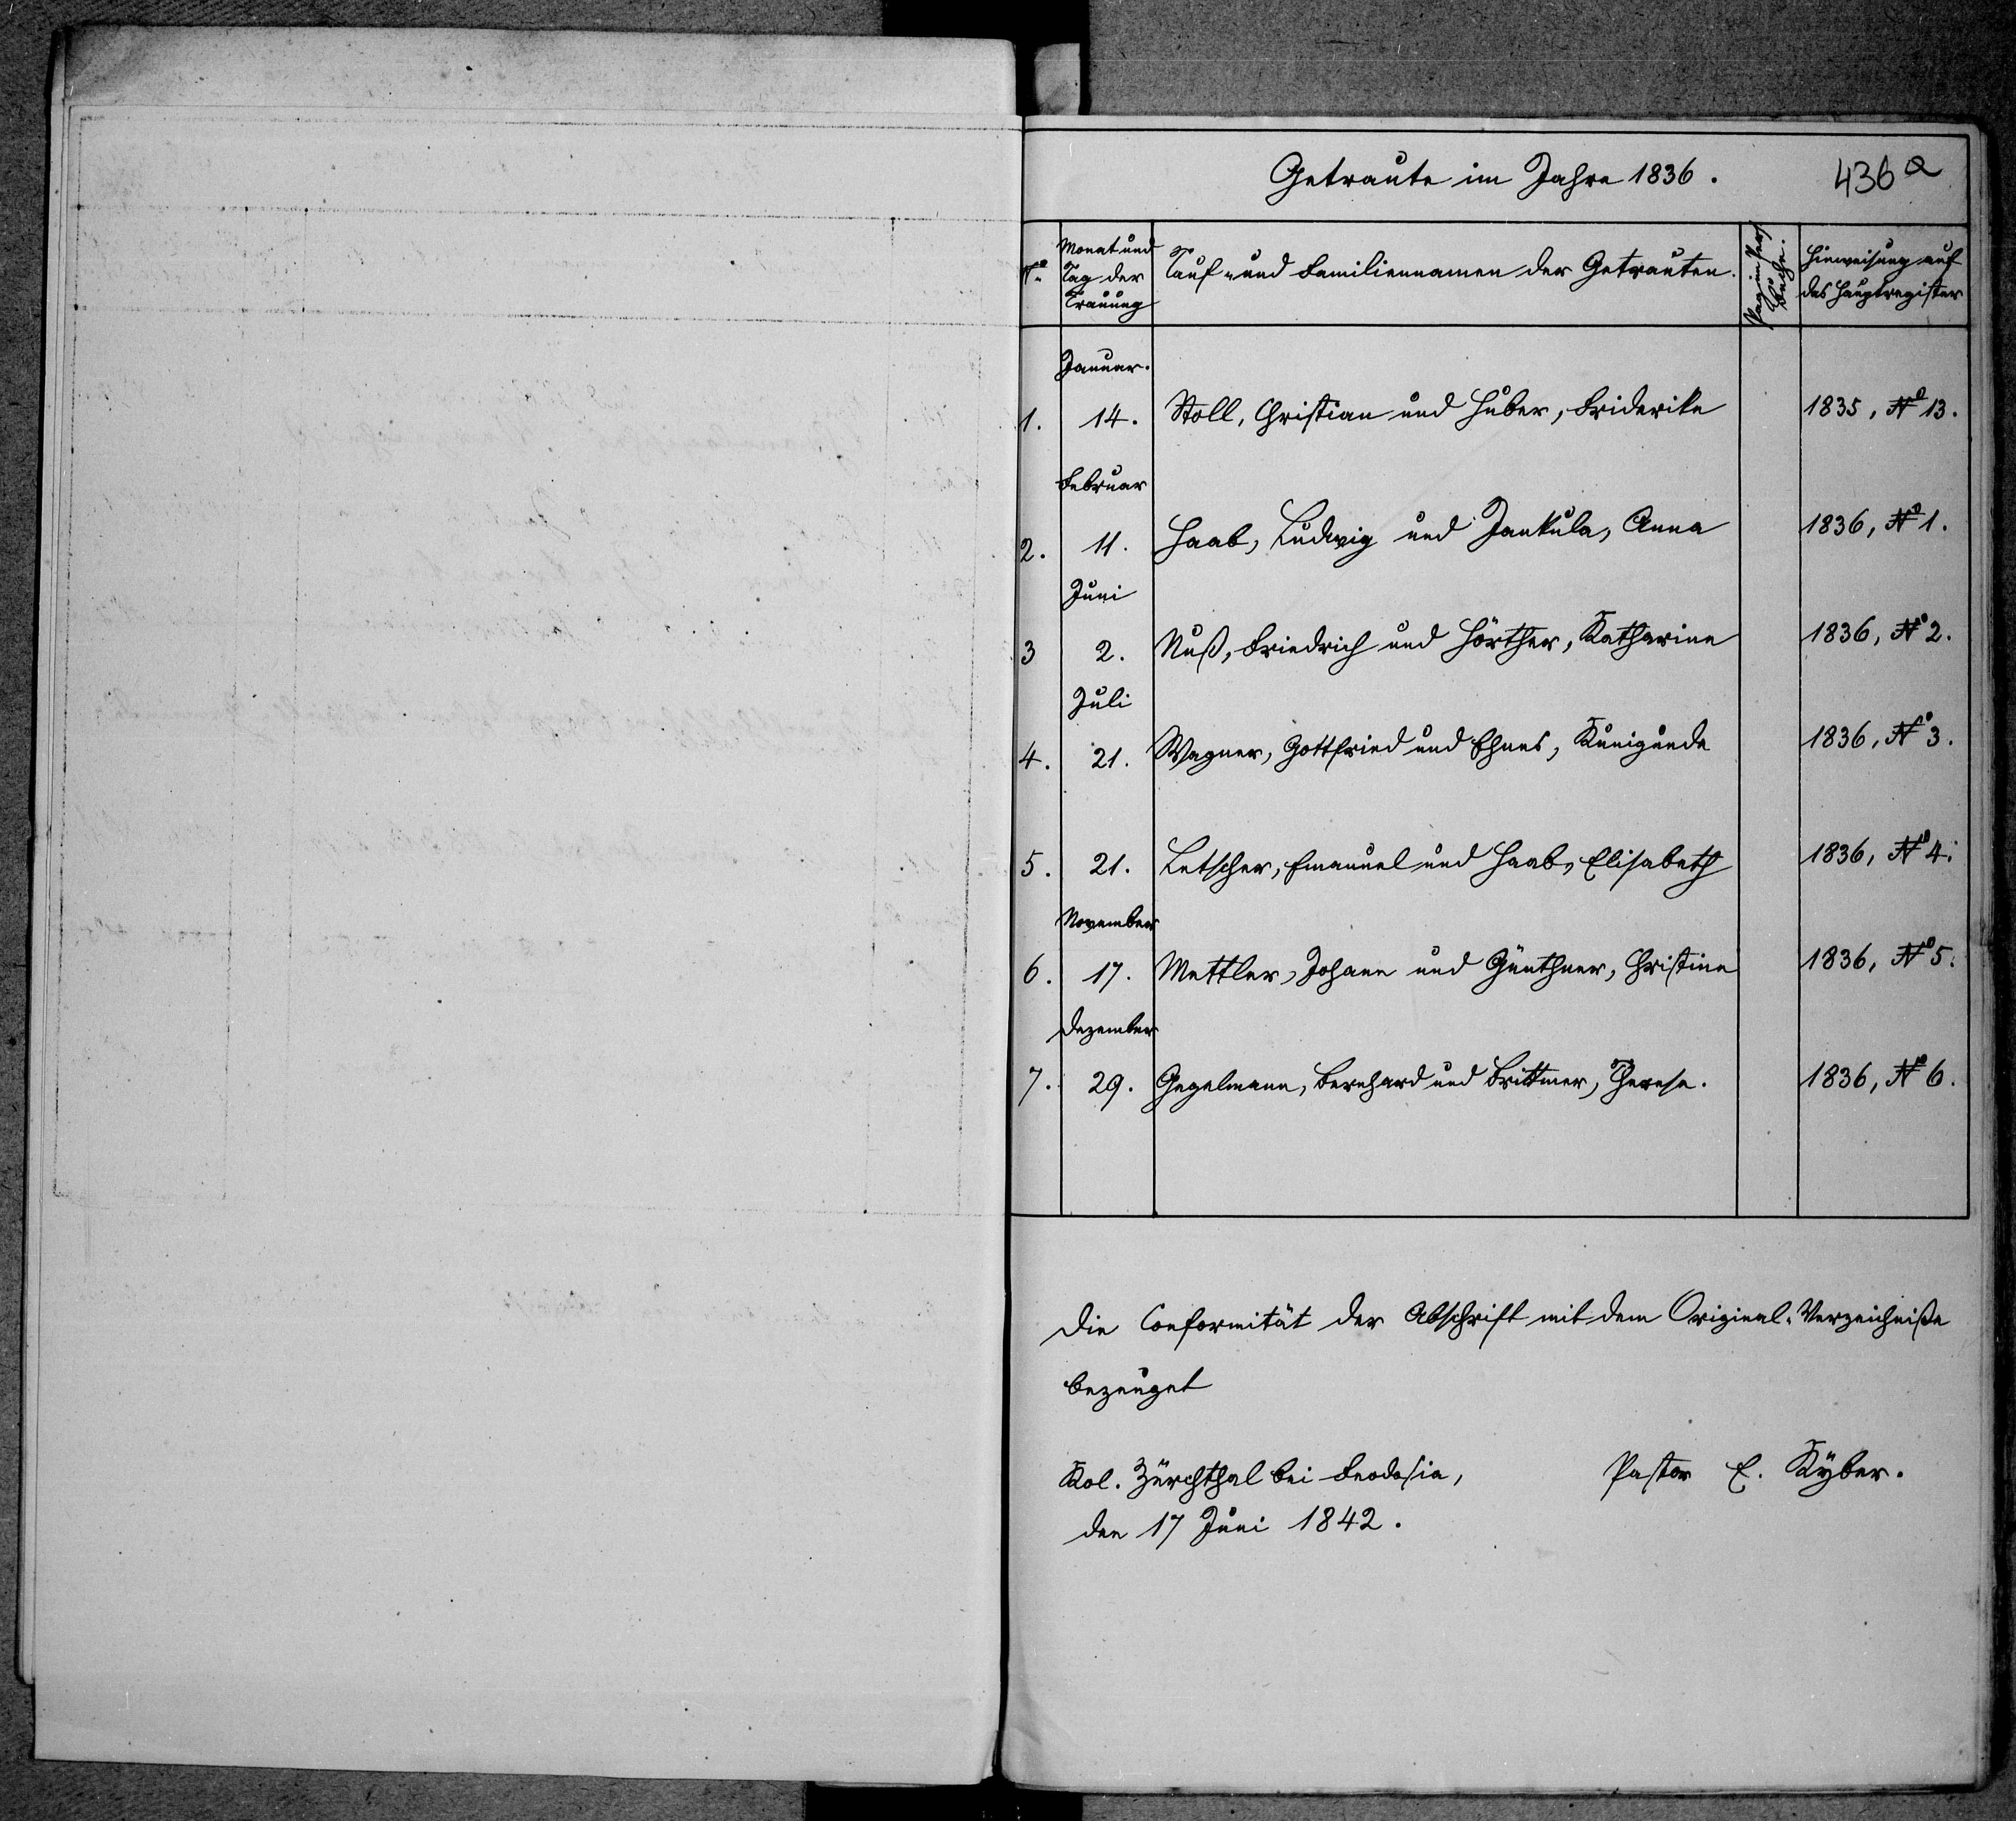 Getraute im Jahre 1836.
436a
No
Monat und
Tag der
Trauung
Tauf- und Familiennamen der Getrauten.
Pag im Pers
Buche.
Hinweisung auf
das Hauptregister
Januar.
1. 14. Stoll, Christian und Huber, Friderike 1835, No 13.
Februar
2. 11. Haab, Ludwig und Jankula, Anna 1836, No 1.
Juni
3 2. Nuß, Friedrich und Hörther, Katharine 1836, No 2.
Juli
4. 21. Wagner, Gottfried und Ehnes, Kunigunde 1836, No 3.
5. 21. Letscher, Emanuel und Haab, Elisabeth 1836, No 4.
November
6. 17. Mettler, Johann und Günthner, Christine 1836, No 5.
Dezember
7. 29. Gegelmann, Bernhard und Brittner, Therese. 1836, No 6.
Die Conformität der Abschrift mit dem Original-Verzeichniße
bezeuget
Kol. Zürchthal bei Feodosia, Pastor E. Kyber.
den 17 Juni 1842.